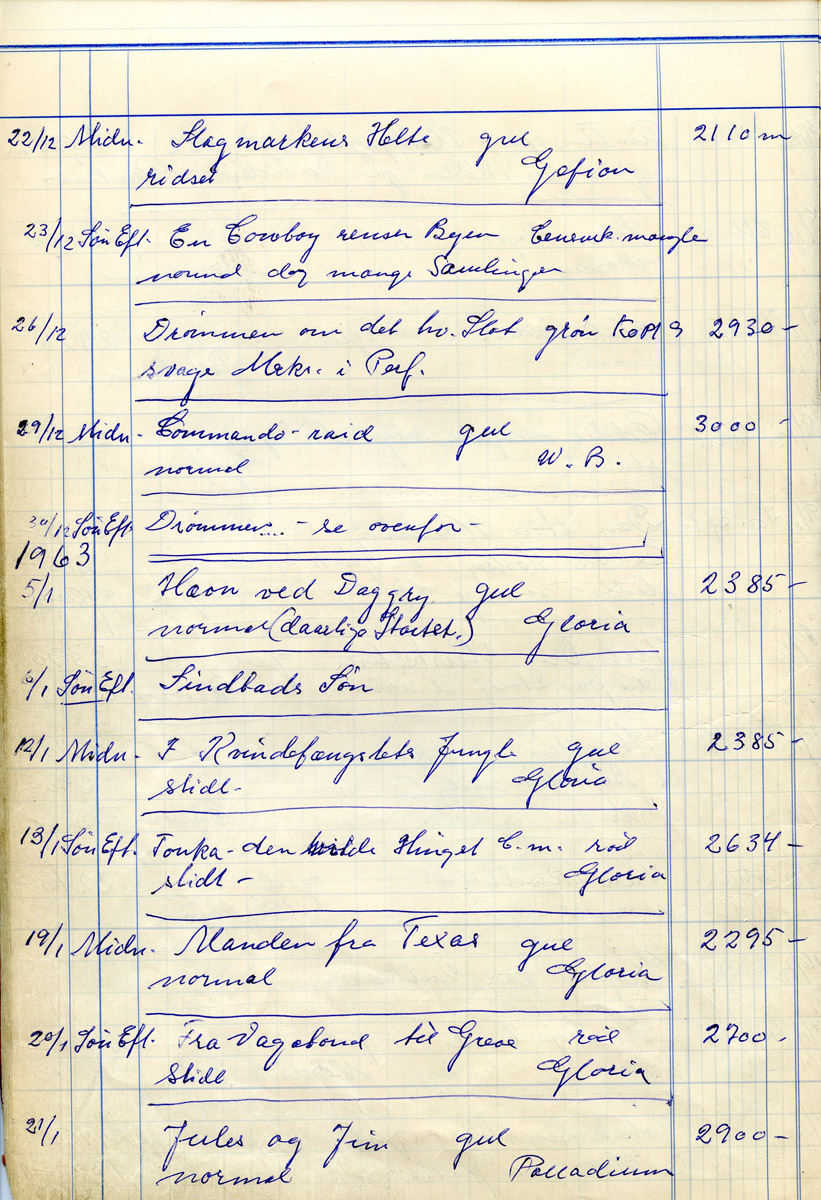 22/12 Midn. Slagmarkens Helte gul 2110 m
ridset Gefion
23/12 Søn Eft. En Cowboy renser Byen mangle
normal dog mange Samlinger
26/12 Drømmen om det hv. Slot grøn 2930-
svage Mrkr. i Perf.
29/12 Midn- Commando-raid gul 3000-
normal W.B.
30/12 Søn Eft. Drømmen.... - se ovenfor-
1963
5/1 Hævn ved Daggry gul 2385-
normal (daarlige Startst.) Gloria
6/1 Søn Eft. Sindbads Søn
12/1 Midn- I Kvindefængslets Jungle gul 2385-
slidt- Gloria
13/1 Søn Eft. Tonka-den vilde Hingst C.m. rød 2634-
slidt- Gloria
19/1 Midn. Manden fra Texas gul 2295-
normal Gloria
20/1 Søn Eft. Fra Vagabond til Greve rød 2700-
slidt Gloria
21/1 Jules og Jim gul 2900-
normal Palladium